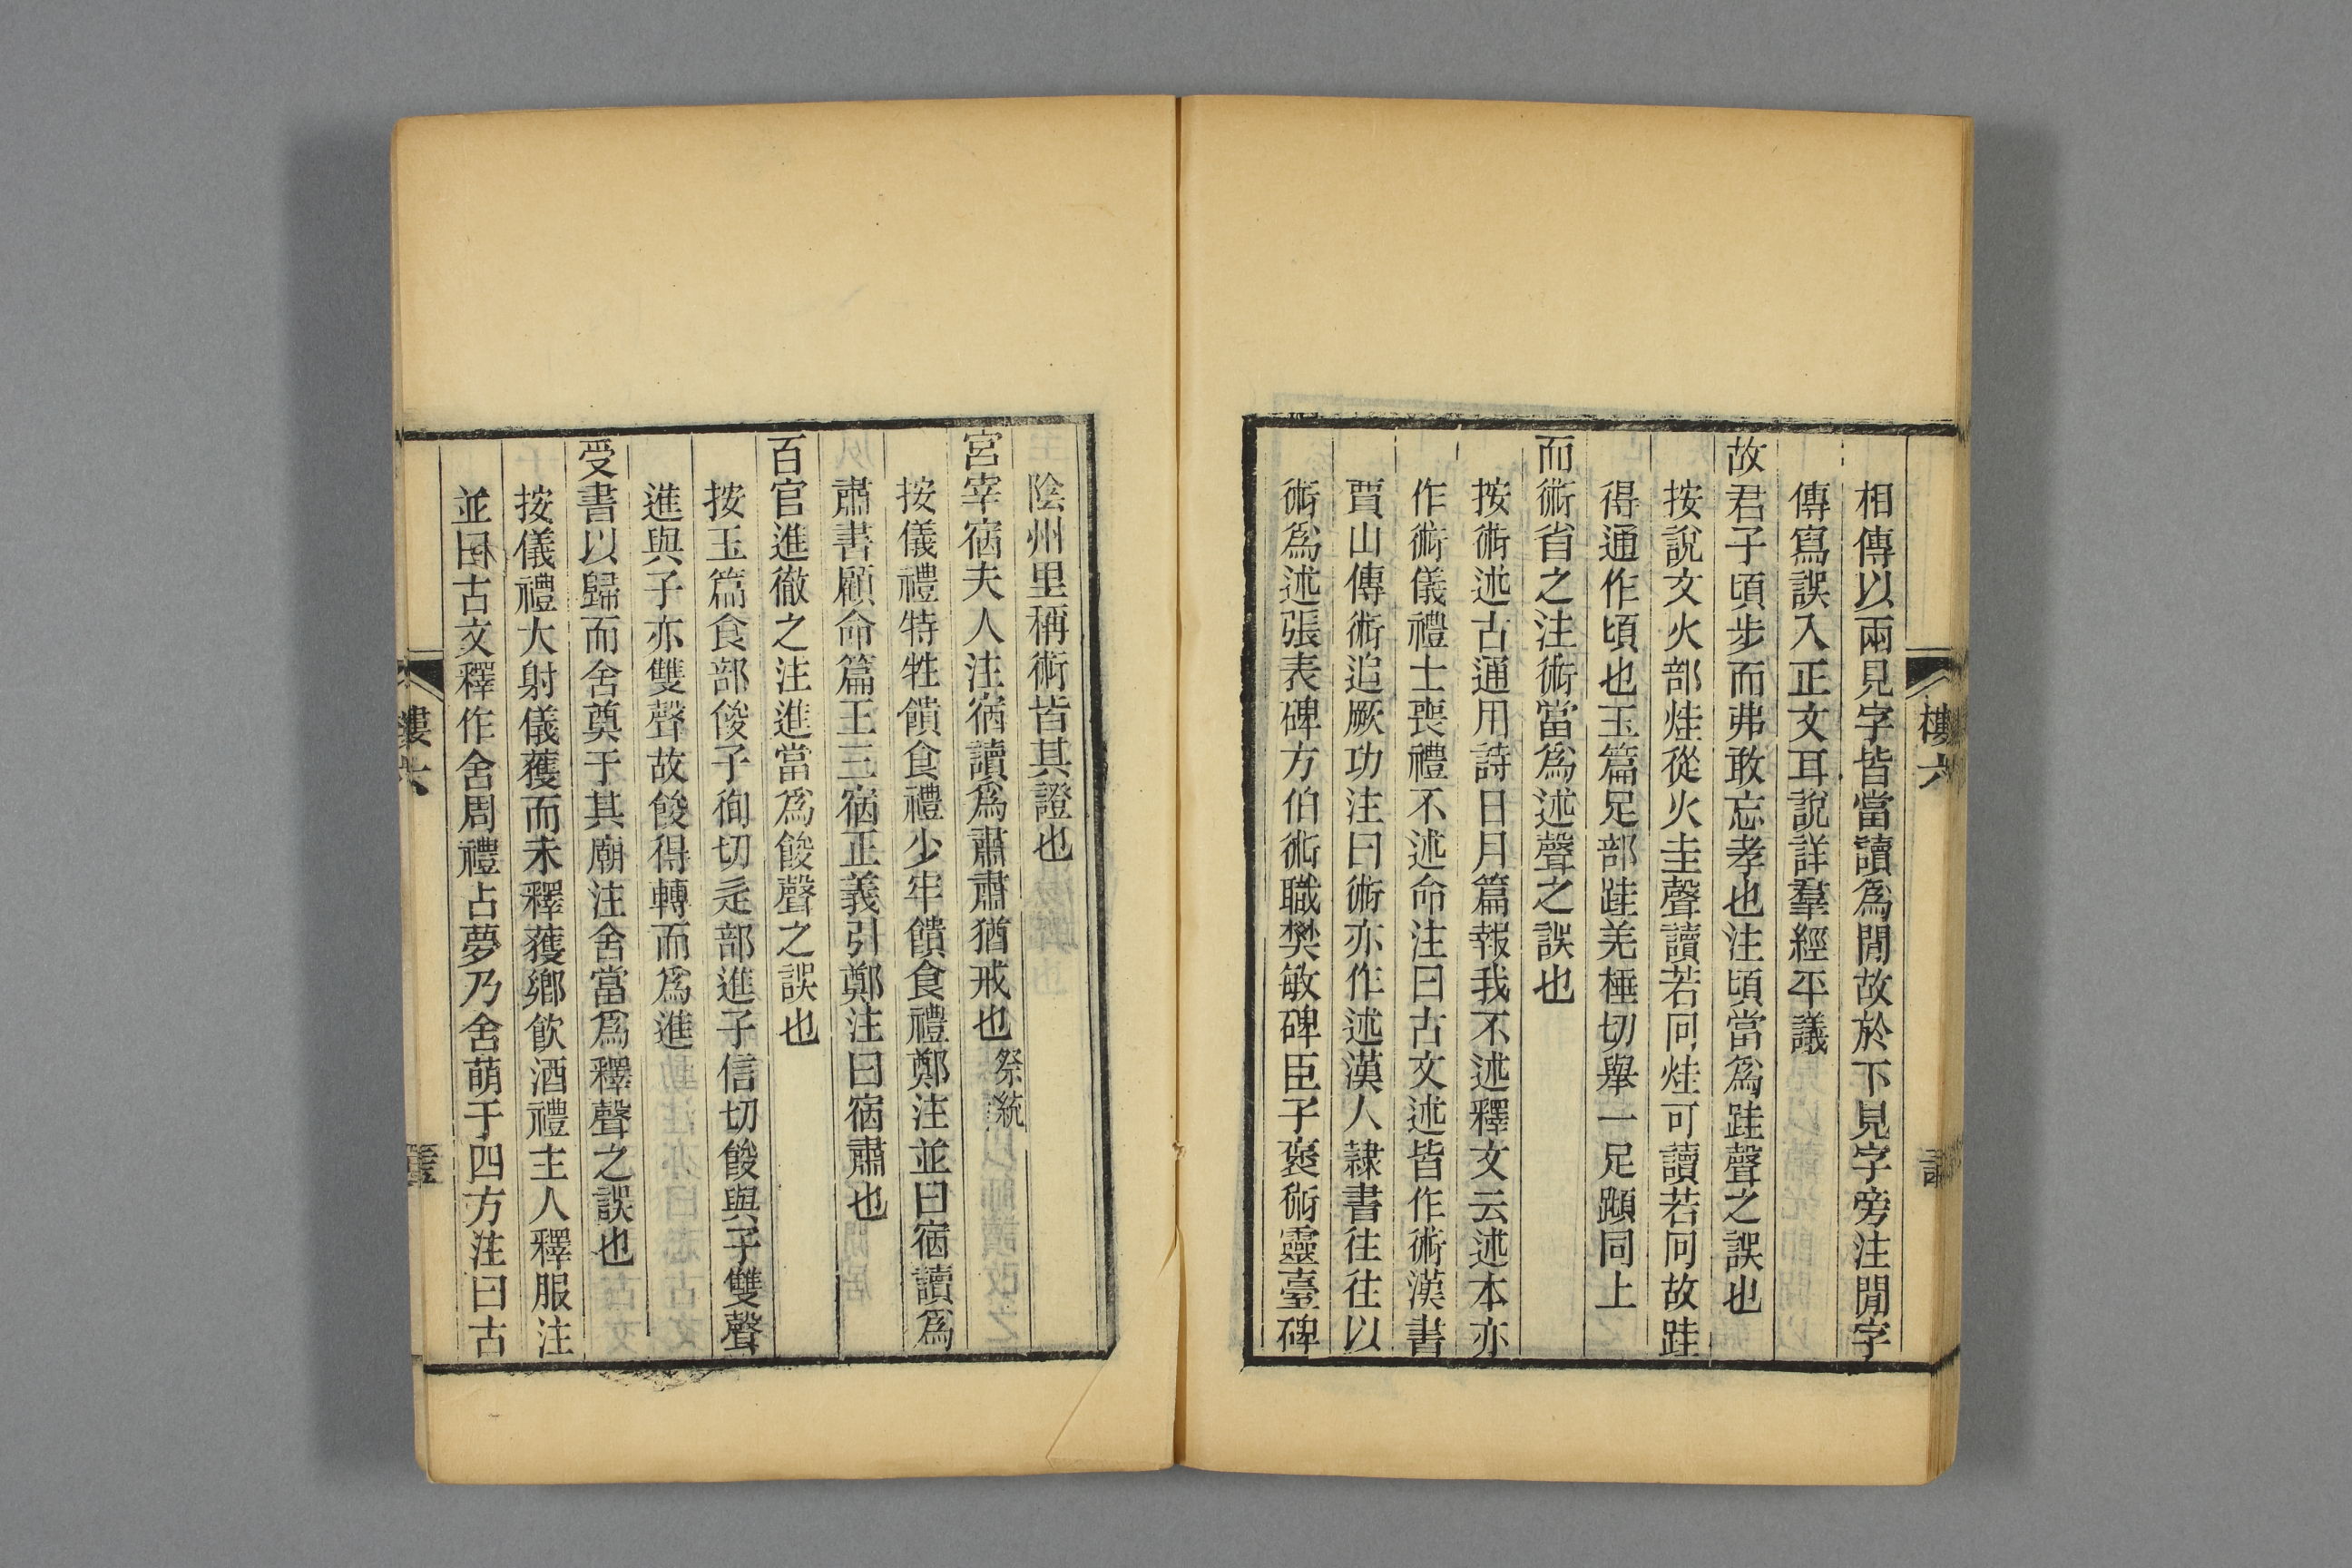 相傳以兩見字皆當讀爲閒故於下見字旁注閒字
傳寫誤入正文耳說詳羣經平議
故君子頃步而弗敢忘孝也注頃當爲跬聲之誤也
按說文火部烓從火圭聲讀若冋烓可讀若冋故跬
得通作頃也玉篇足部跬羌棰切舉一足䠑同上
而術省之注術當爲述聲之誤也
按術述古通用詩日月篇報我不述釋文云述本亦
作術儀禮士喪禮不述命注曰古文述皆作術漢書
賈山傳術追厥功注曰術亦作述漢人隷書往往以
術爲述張表碑方伯術職樊敏碑臣子襃術靈臺碑
陰州里稱術皆其證也
宮宰宿夫人注宿讀爲肅肅猶戒也 祭統
按儀禮特牲饋食禮少牢饋食禮鄭注並曰宿讀爲
肅書顧命篇王三宿正義引鄭注曰宿肅也
百官進徹之注進當爲餕聲之誤也
按玉篇食部餕子徇切辵部進子信切餕與子雙聲
進與子亦雙聲故餕得轉而爲進
受書以歸而舍奠于其廟注舍當爲釋聲之誤也
按儀禮大射儀獲而未釋獲鄉飲酒禮主人釋服注
並曰古文釋作舍周禮占夢乃舍萌于四方注曰古
樓六
樓六